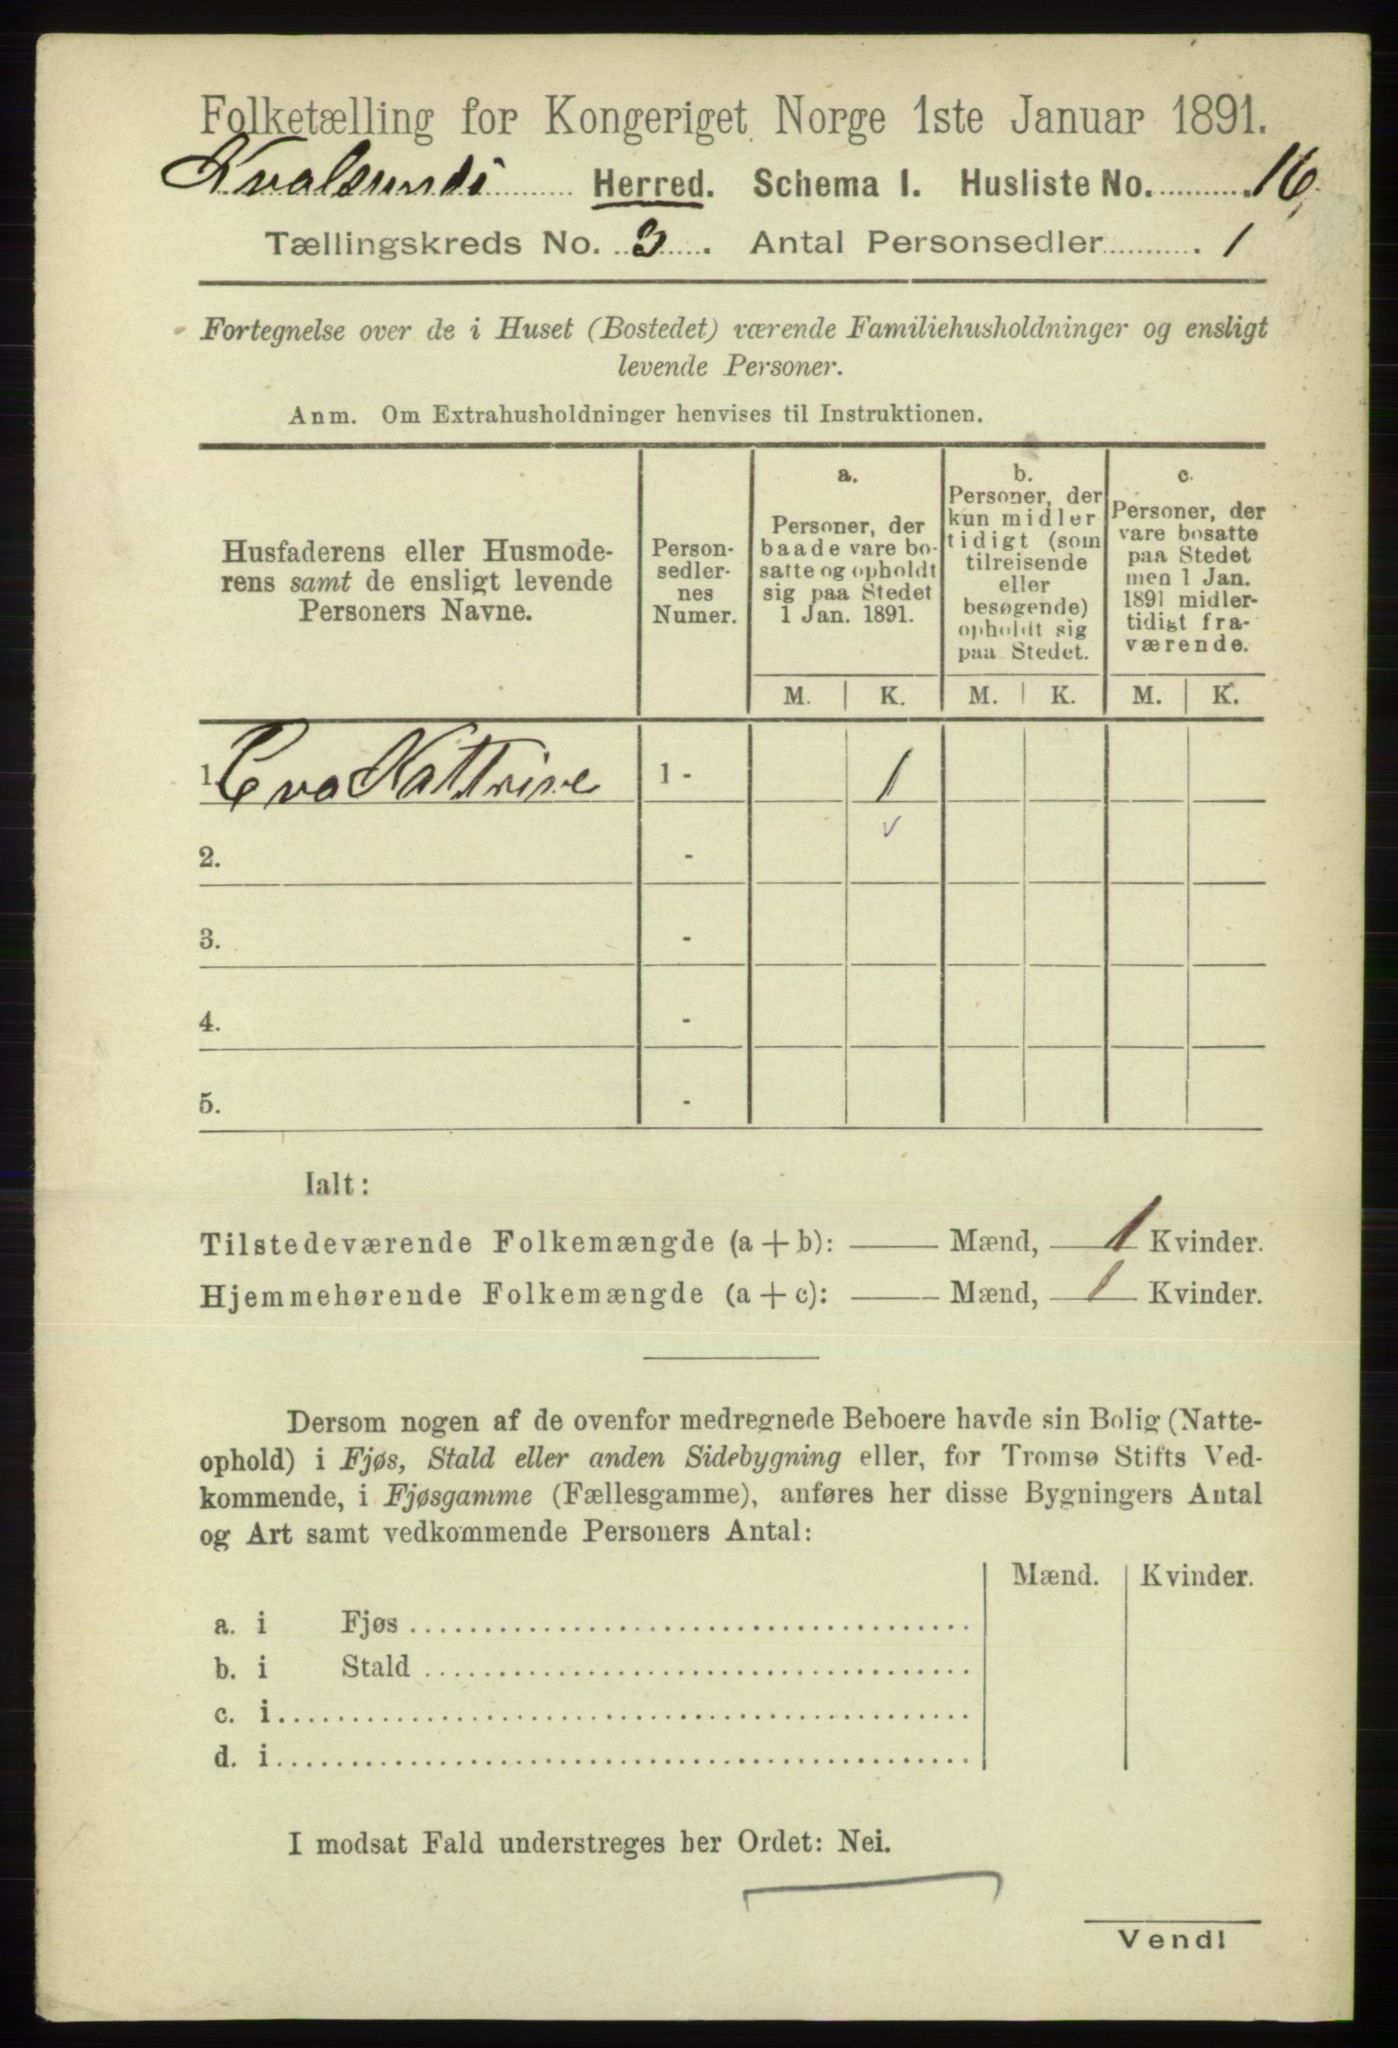 Folketælling for Kongeriget Norge 1ste Januar 1891.
Kvalsunds Herred. Schema I. Husliste No. 16
Tællingskreds No. 3. Antal Personsedler 1
Fortegnelse over de i Huset (Bostedet) værende Familiehusholdninger og ensligt
levende Personer.
Anm. Om Extrahusholdninger henvises til Instruktionen.
Husfaderens eller Husmode-
rens samt de ensligt levende
Personers Navne.
Person-
sedler-
nes
Numer.
a.
Personer, der
baade vare bo-
satte og opholdt
sig paa Stedet
1 Jan. 1891.
b.
Personer, der
kun midler
tidigt (som
tilreisende
eller
besøgende)
opholdt sig
paa Stedet.
c.
Personer, der
vare bosatte
paa Stedet
men 1 Jan.
1891 midler-
tidigt fra-
værende.
M. K. M. K. M. K.
1. Eva Kattrine 1 - 1
2. -
3. -
4. -
5. -
Ialt:
Tilstedeværende Folkemængde (a + b): Mænd, 1 Kvinder.
Hjemmehørende Folkemængde (a + c): Mænd, 1 Kvinder.
Dersom nogen af de ovenfor medregnede Beboere havde sin Bolig (Natte-
ophold) i Fjøs, Stald eller anden Sidebygning eller, for Tromsø Stifts Ved-
kommende, i Fjøsgamme (Fællesgamme), anføres her disse Bygningers Antal
og Art samt vedkommende Personers Antal:
Mænd. Kvinder.
a. i Fjøs
b. i Stald
c. i
d. i
I modsat Fald understreges her Ordet: Nei.
Vend!